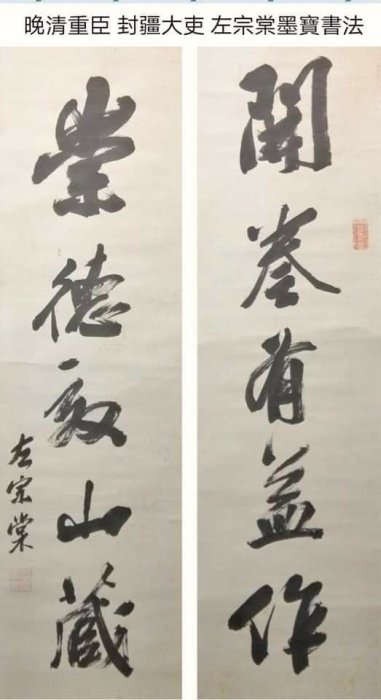 晚清重臣 封疆大吏 左宗棠墨寶書法
開卷有益作
崇德敦山藏
左宗棠